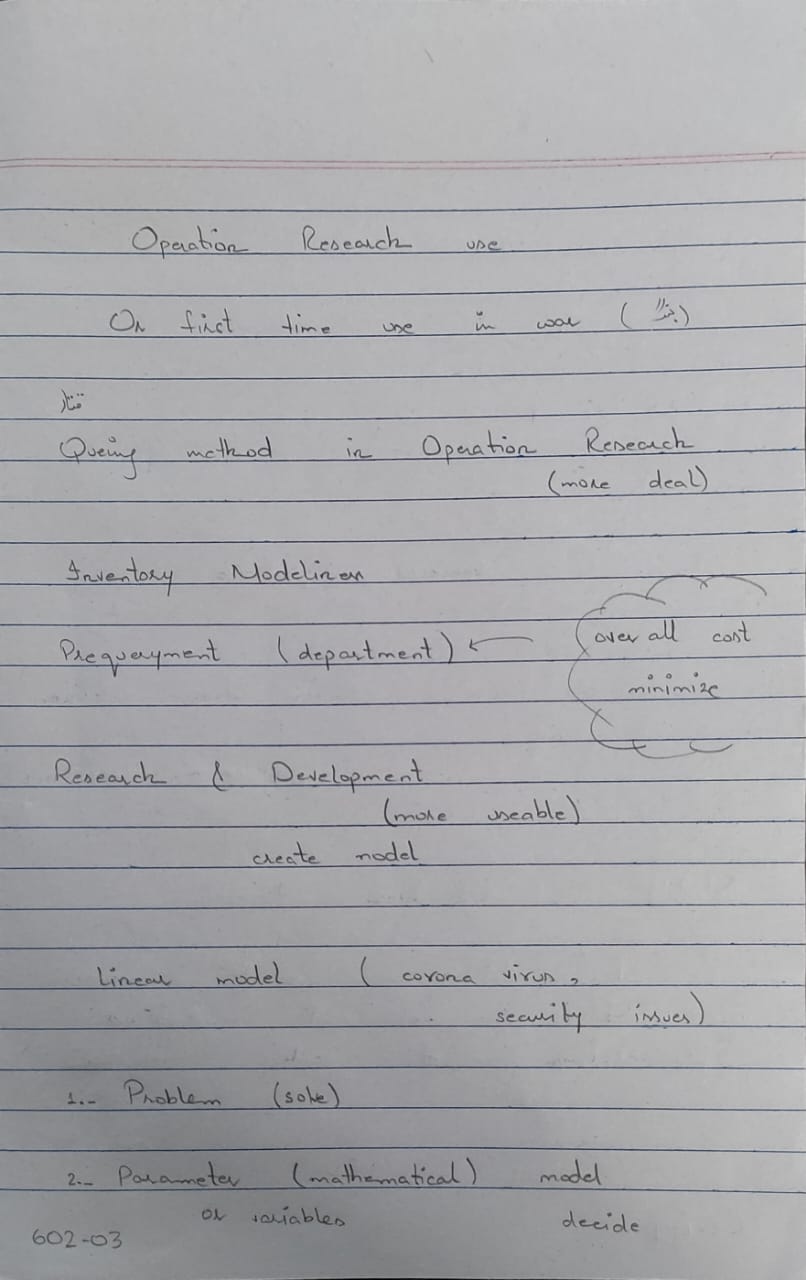 Operation Research use
Or first time use in war (جنگ)
قطار
Queing method in Operation Research
(more deal)
Inventory Modelinen
Prequeryment (department) ←
over all cost
minimize
Research & Development
(more useable)
create model
Linear model ( corona virus,
security issues)
1.- Problem (solve)
2.- Parameter (mathematical) model
or variables decide
602-03